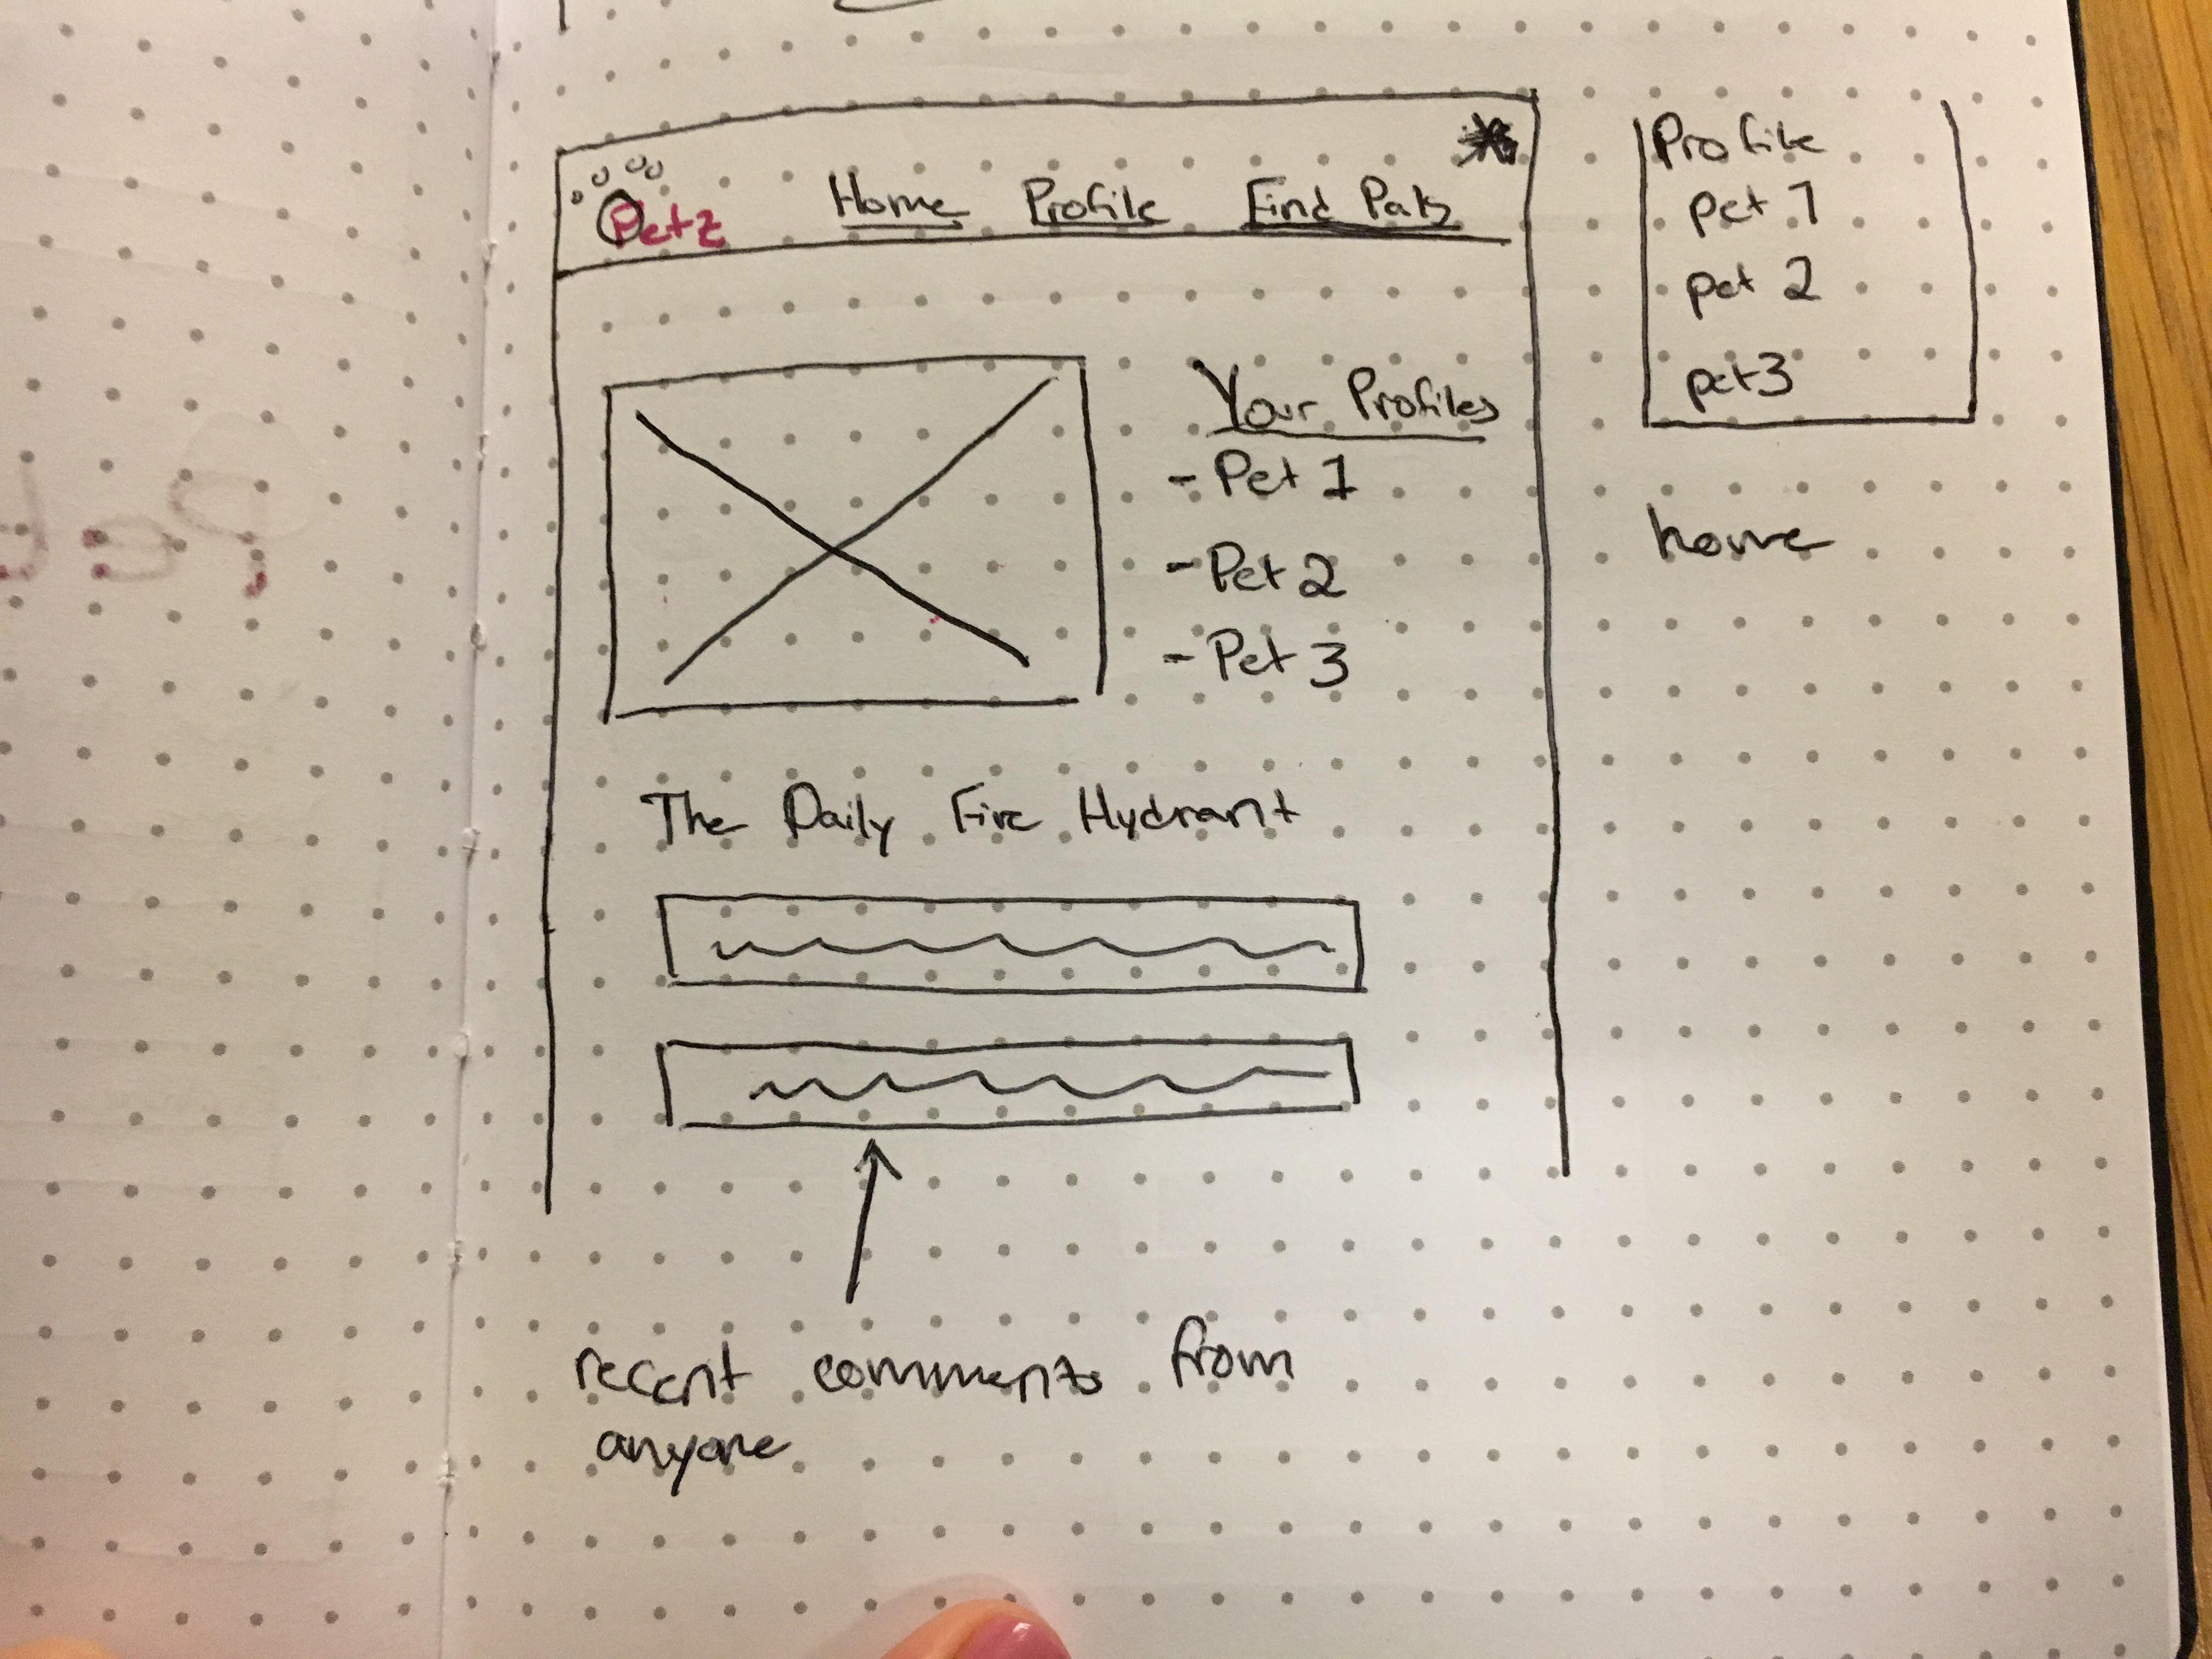 Petz
Home Profile Find Pals
Your Profiles
- Pet 1
- Pet 2
- Pet 3
The Daily Fire Hydrant
recent comments from
anyone
Profile
pet 1
pet 2
pet 3
home